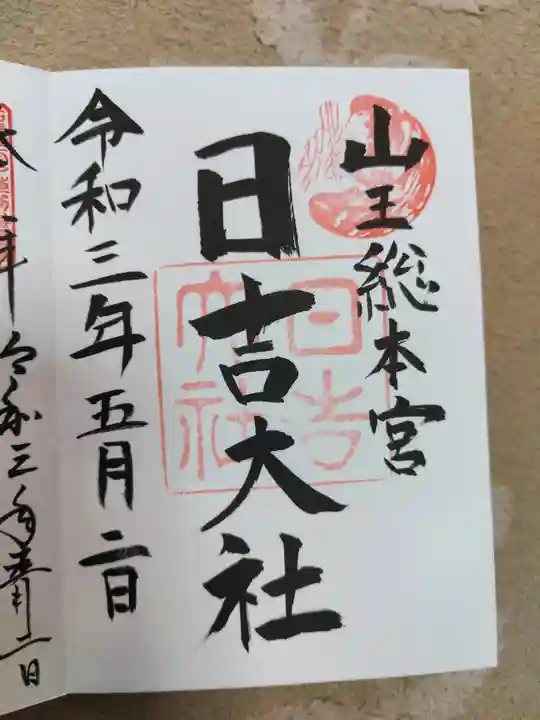 山王総本宮
日吉大社
日吉
大社
令和三年五月二日
年 令和三年
二日